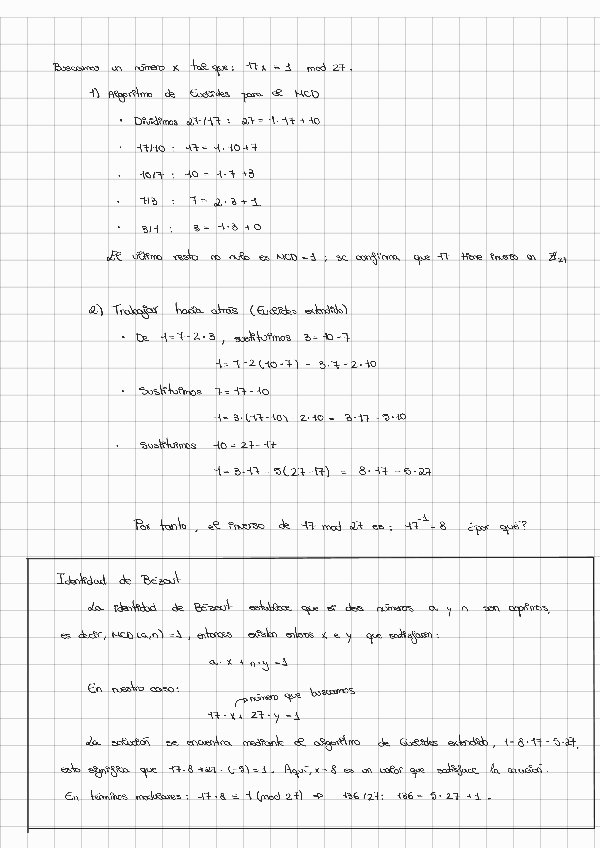 Buscamos un número x tal que: 17x = 1 mod 27.
1) Algoritmo de Euclides para el MCD
· Dividimos 27/17 : 27 = 1·17 + 10
· 17/10 : 17 = 1·10 + 7
· 10/7 : 10 = 1·7 + 3
· 7/3 : 7 = 2·3 + 1
· 3/1 : 3 = 1·3 + 0
El último resto no nulo es MCD = 1 ; se confirma que 17 tiene inverso en Z₂₇
2) Trabajar hacia atrás (Euclides extendido)
· De 1 = 7 - 2·3 , sustituimos 3 = 10 - 7
1 = 7 - 2(10 - 7) = 3·7 - 2·10
· Sustituimos 7 = 17 - 10
1 = 3·(17 - 10) 2·10 = 3·17 - 5·10
· Sustituimos 10 = 27 - 17
1 = 3·17 5(27 17) = 8·17 - 5·27
Por tanto, el inverso de 17 mod 27 es: 17⁻¹ = 8 ¿por qué?
Identidad de Bézout
La identidad de Bézout establece que si dos números a y n son coprimos,
es decir, MCD(a,n) = 1, entonces existen enteros x e y que satisfacen:
a·x + n·y = 1
En nuestro caso:
número que buscamos
17·x + 27·y = 1
La solución se encuentra mediante el algoritmo de Euclides extendido, 1 = 8·17 - 5·27,
esto significa que 17·8 + 27·(-5) = 1. Aquí, x = 8 es un valor que satisface la ecuación.
En términos modulares: 17·8 ≡ 1 (mod 27) ⇒ 136/27: 136 = 5·27 + 1.